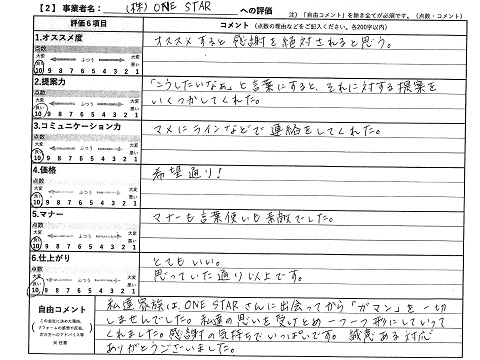 【2】事業者名: (株) ONE STAR への評価
注）「自由コメント」を除き全てが必須です。（点数・コメント）
評価6項目
コメント（点数の理由などをご記入ください。各200字以内）
1.オススメ度
点数
大変良い ふつう 大変悪い
10 9 8 7 6 5 4 3 2 1
オススメすると感謝を絶対されると思う。
2.提案力
点数
大変良い ふつう 大変悪い
10 9 8 7 6 5 4 3 2 1
「こうしたいなぁ」と言葉にすると、それに対する提案を
いくつかしてくれた。
3.コミュニケーション力
点数
大変良い ふつう 大変悪い
10 9 8 7 6 5 4 3 2 1
マメにラインなどで連絡をしてくれた。
4.価格
点数
大変良い ふつう 大変悪い
10 9 8 7 6 5 4 3 2 1
希望通り!
5.マナー
点数
大変良い ふつう 大変悪い
10 9 8 7 6 5 4 3 2 1
マナーも言葉使いも素敵でした。
6.仕上がり
点数
大変良い ふつう 大変悪い
10 9 8 7 6 5 4 3 2 1
とてもいい。
思っていた通り以上です。
自由コメント
この会社に決めた理由、
リフォームの感想や反省、
次の方へのアドバイス等
※任意
私達家族は、ONE STARさんに出会ってから「ガマン」を一切
しませんでした。私達の思いを受けとめ一つ一つ形にしていって
くれました。感謝の気持ちでいっぱいです。誠意ある対応
ありがとうございました。